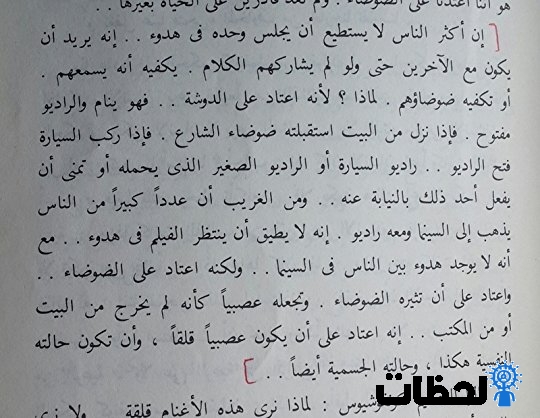 هو أننا اعتدنا على الضوضاء . ولم نعد قادرين على الحياة بغيرها . .
[ إن أكثر الناس لا يستطيع أن يجلس وحده فى هدوء . . إنه يريد أن
يكون مع الآخرين حتى ولو لم يشاركهم الكلام . يكفيه أنه يسمعهم .
أو تكفيه ضوضاؤهم . لماذا ؟ لأنه اعتاد على الدوشة . . فهو ينام والراديو
مفتوح . فإذا نزل من البيت استقبلته ضوضاء الشارع . فإذا ركب السيارة
فتح الراديو . . راديو السيارة أو الراديو الصغير الذى يحمله أو تمنى أن
يفعل أحد ذلك بالنيابة عنه . . ومن الغريب أن عدداً كبيراً من الناس
يذهب إلى السينما ومعه راديو . إنه لا يطيق أن ينتظر الفيلم فى هدوء . . مع
أنه لا يوجد هدوء بين الناس فى السينما . . ولكنه اعتاد على الضوضاء . .
واعتاد على أن تثيره الضوضاء . وتجعله عصبياً كأنه لم يخرج من البيت
أو من المكتب . . إنه اعتاد على أن يكون عصبياً قلقاً ، وأن تكون حالته
النفسية هكذا ، وحالته الجسمية أيضاً . . ]
: لماذا نرى هذه الأغنام قلقة ولا نرى
لحظات